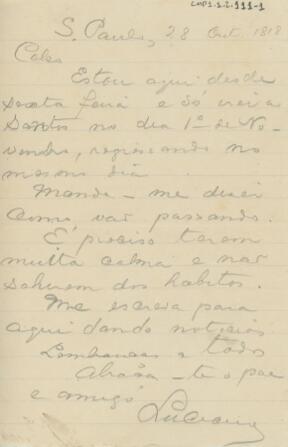 COP1.1.2.111-1
S. Paulo, 28 Out. 1918
Estou aqui desde
sexta feira e só irei a
Santos no dia 1º de No-
vembro, regressando no
mesmo dia.
Mande-me dizer
como vai passando.
É preciso terem
muita calma e não
sahirem dos habitos.
Me escreva para
aqui dando noticias
Lembranças a todos
Abraça-te o pae
e amigo